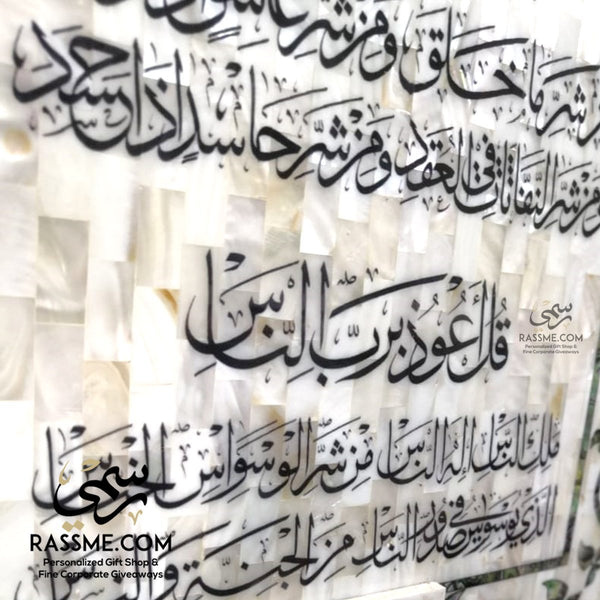 شر ما خلق ومن شر غاسق
ومن شر النفاثات في العقد ومن شر حاسد إذا حسد
قُلْ أَعُوذُ بِرَبِّ النَّاسِ
ملك الناس إله الناس من شر الوسواس الخناس
الذي يوسوس في صدور الناس من الجنة والناس
رسمي
RASSME.COM
Personalized Gift Shop &
Fine Corporate Giveaways
رسمي
RASSME.COM
Personalized Gift Shop &
Fine Corporate Giveaways